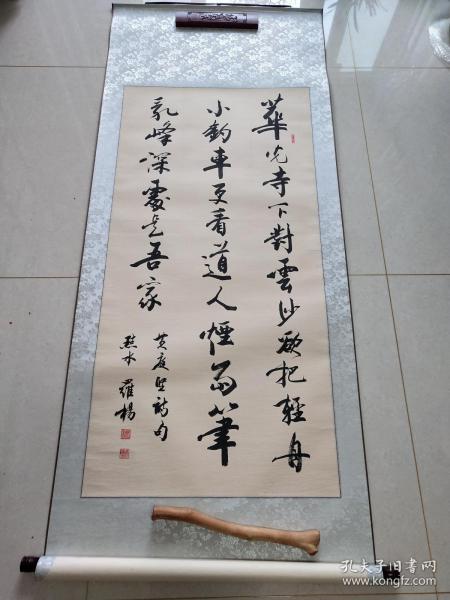 華光寺下對雲沙欲把輕舟
小釣車更看道人煙雨筆
亂峰深處是吾家
黄庭堅詩句
水 羅楊
孔夫子旧书网
www.kongfz.com